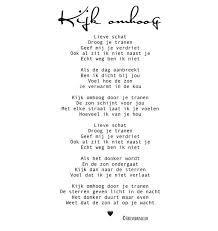 Kijk omhoog
Lieve schat
Droog je tranen
Geef mij je verdriet
Ook al zit ik niet naast je
Echt weg ben ik niet
Als de dag aanbreekt
Ben ik dicht bij jou
Voel hoe de zon
Je verwarmt in de kou
Kijk omhoog door je tranen
De zon schijnt voor jou
Met elke straal laat ik je voelen
Hoeveel ik van je hou
Lieve schat
Droog je tranen
Geef mij je verdriet
Ook al zit ik niet naast je
Echt weg ben ik niet
Als het donker wordt
En de zon ondergaat
Kijk dan naar de sterren
Voel dat ik je niet verlaat
Kijk omhoog door je tranen
De sterren geven licht in de nacht
Het donker duurt maar even
Weet dat de zon al op je wacht